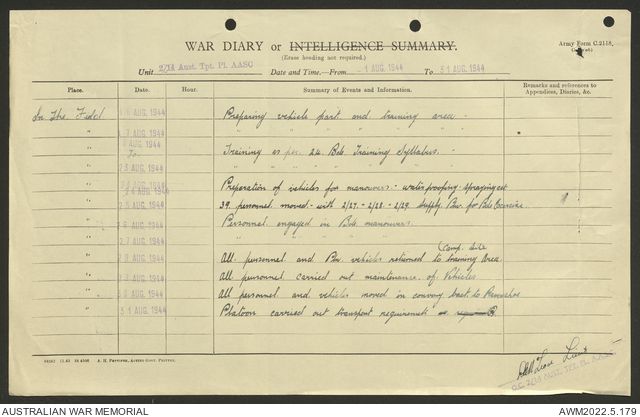 WAR DIARY or INTELLIGENCE SUMMARY.
(Erase heading not required.)
Army Form C.2118.
Unit 2/14 Aust. Tpt. Pl. AASC Date and Time.—From 1 AUG 1944 To 31 AUG 1944
Place. Date. Hour. Summary of Events and Information. Remarks and references to Appendices, Diaries, &c.
In The Field AUG. 1944 Preparing vehicle park and training area -
" 17 AUG. 1944 " " " " "
" AUG. 1944 Training as per 24 Bde Training Syllabus. -
" To
" 23 AUG. 1944 " " " " "
" 24 AUG. 1944 Preparation of vehicles for manouvers - waterproofing - spraying etc
" 25 AUG. 1944 39 personnel moved - with 2/27 - 2/28 - 2/29 Supply for Bde Exercise
" 26 AUG. 1944 Personnel engaged in Bde manouvers
" 27 AUG. 1944 " " " "
" AUG. 1944 All personnel and vehicles returned to Camp Site training Area.
" AUG. 1944 All personnel carried out maintenance of Vehicles
" AUG. 1944 All personnel and vehicles moved in convoy back to
" 31 AUG. 1944 Platoon carried out transport requirements
A. H. Pettifer, Acting Govt. Printer.
Lieut
O.C. 2/14 AUST. TPT. PL. A.A.S.C.
AUSTRALIAN WAR MEMORIAL AWM2022.5.179